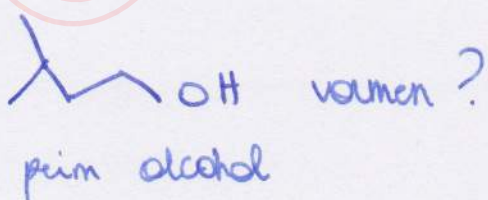 OH vormen ?
prim alcohol